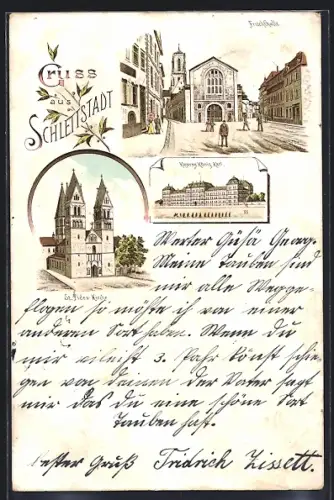 Gruss
aus
SCHLETTSTADT
Fruchthalle
Kaserne König Karl
St. Fides Kirche
Werter Georg.
Meine Tauben sind
mir alle Wegge-
flogen so möste ich von einer
anderen Sort haben. Wenn du
mir vileist 3. Pahr könst schi-
gen von deinen der Vater sagt
mir das du eine schöne Sort
Tauben hast.
bester Gruß Fridrich Zissett.